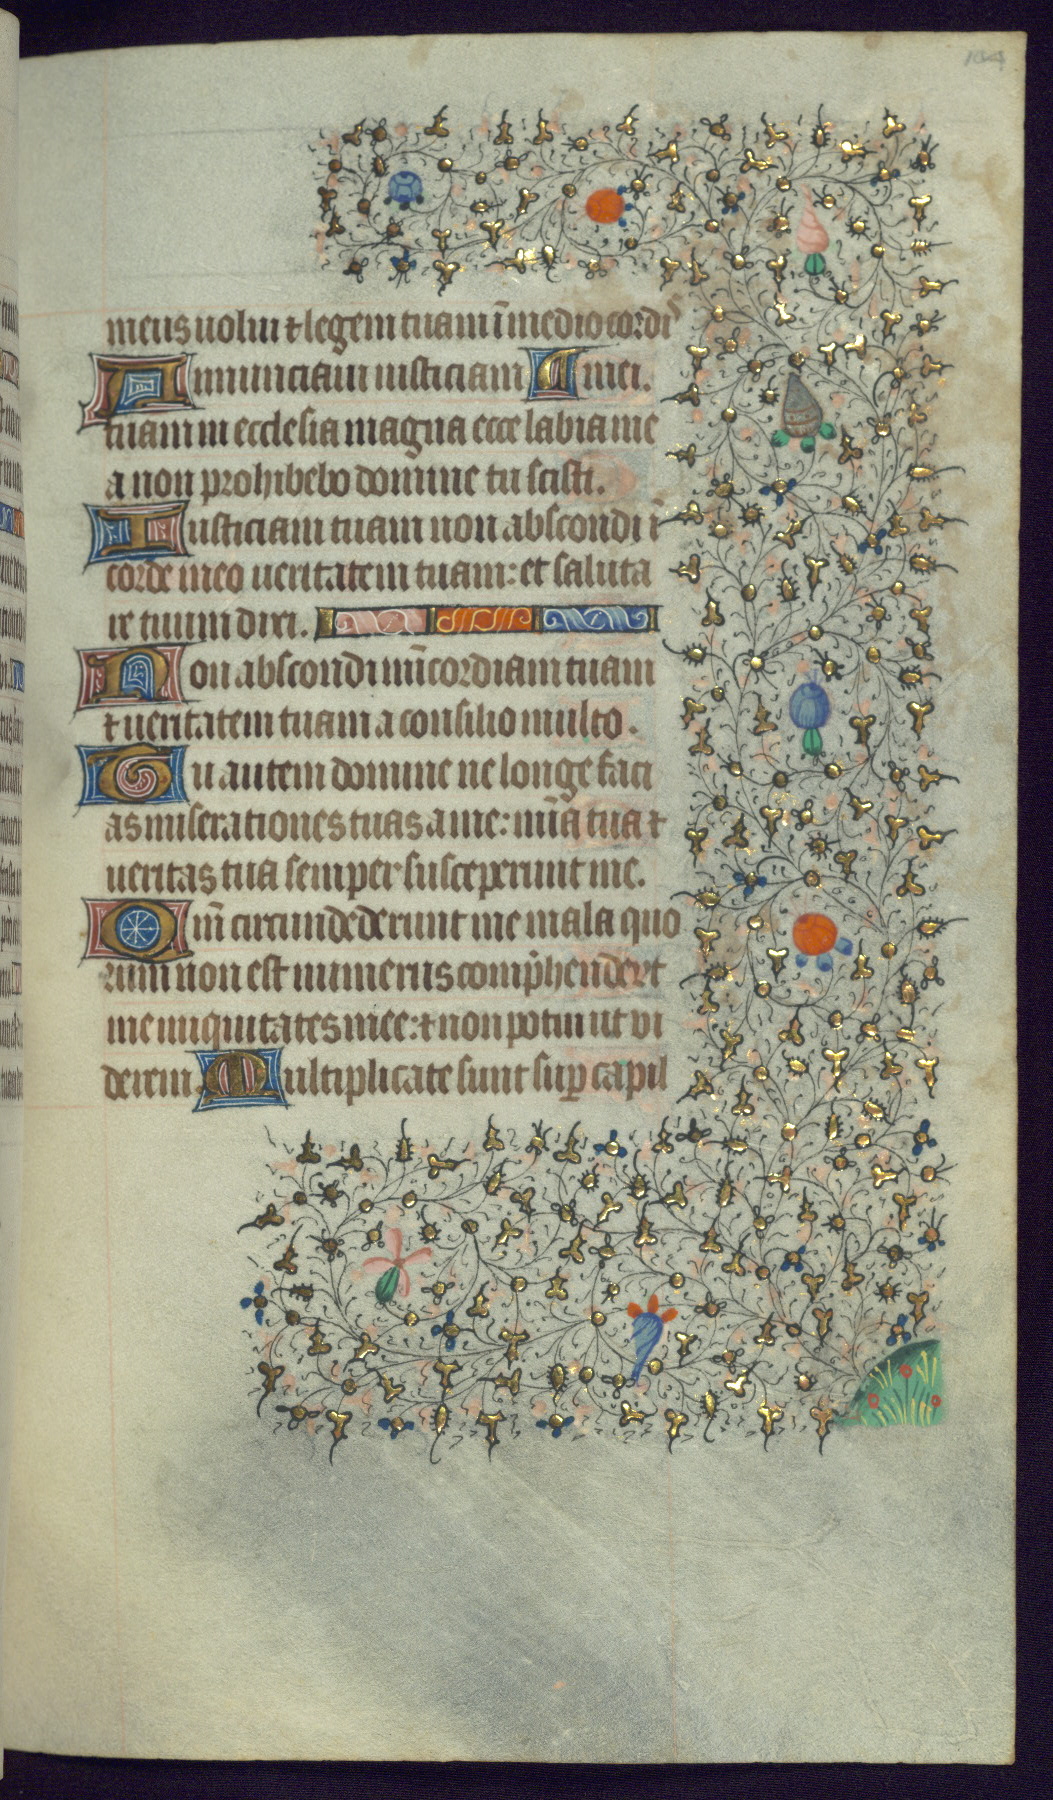 meus uolui ⁊ legem tuam ī medio cordis
Annunciaui iusticiam mei.
tuam in ecclesia magna ecce labia me
a non prohibebo domine tu scisti.
Iusticiam tuam non abscondi ī
corde meo ueritatem tuam: et saluta
re tuum dixi.
Non abscondi mīcordiam tuam
⁊ ueritatem tuam a consilio multo.
Tu autem domine ne longe faci
as miserationes tuas a me: mīa tua ⁊
ueritas tua semper susceperunt me.
Qm̄ circumdederunt me mala quo
rum non est numerus comp̄hendert
me iniquitates mee: ⁊ non potui ut vi
derem. Multiplicate sunt suꝑ capil